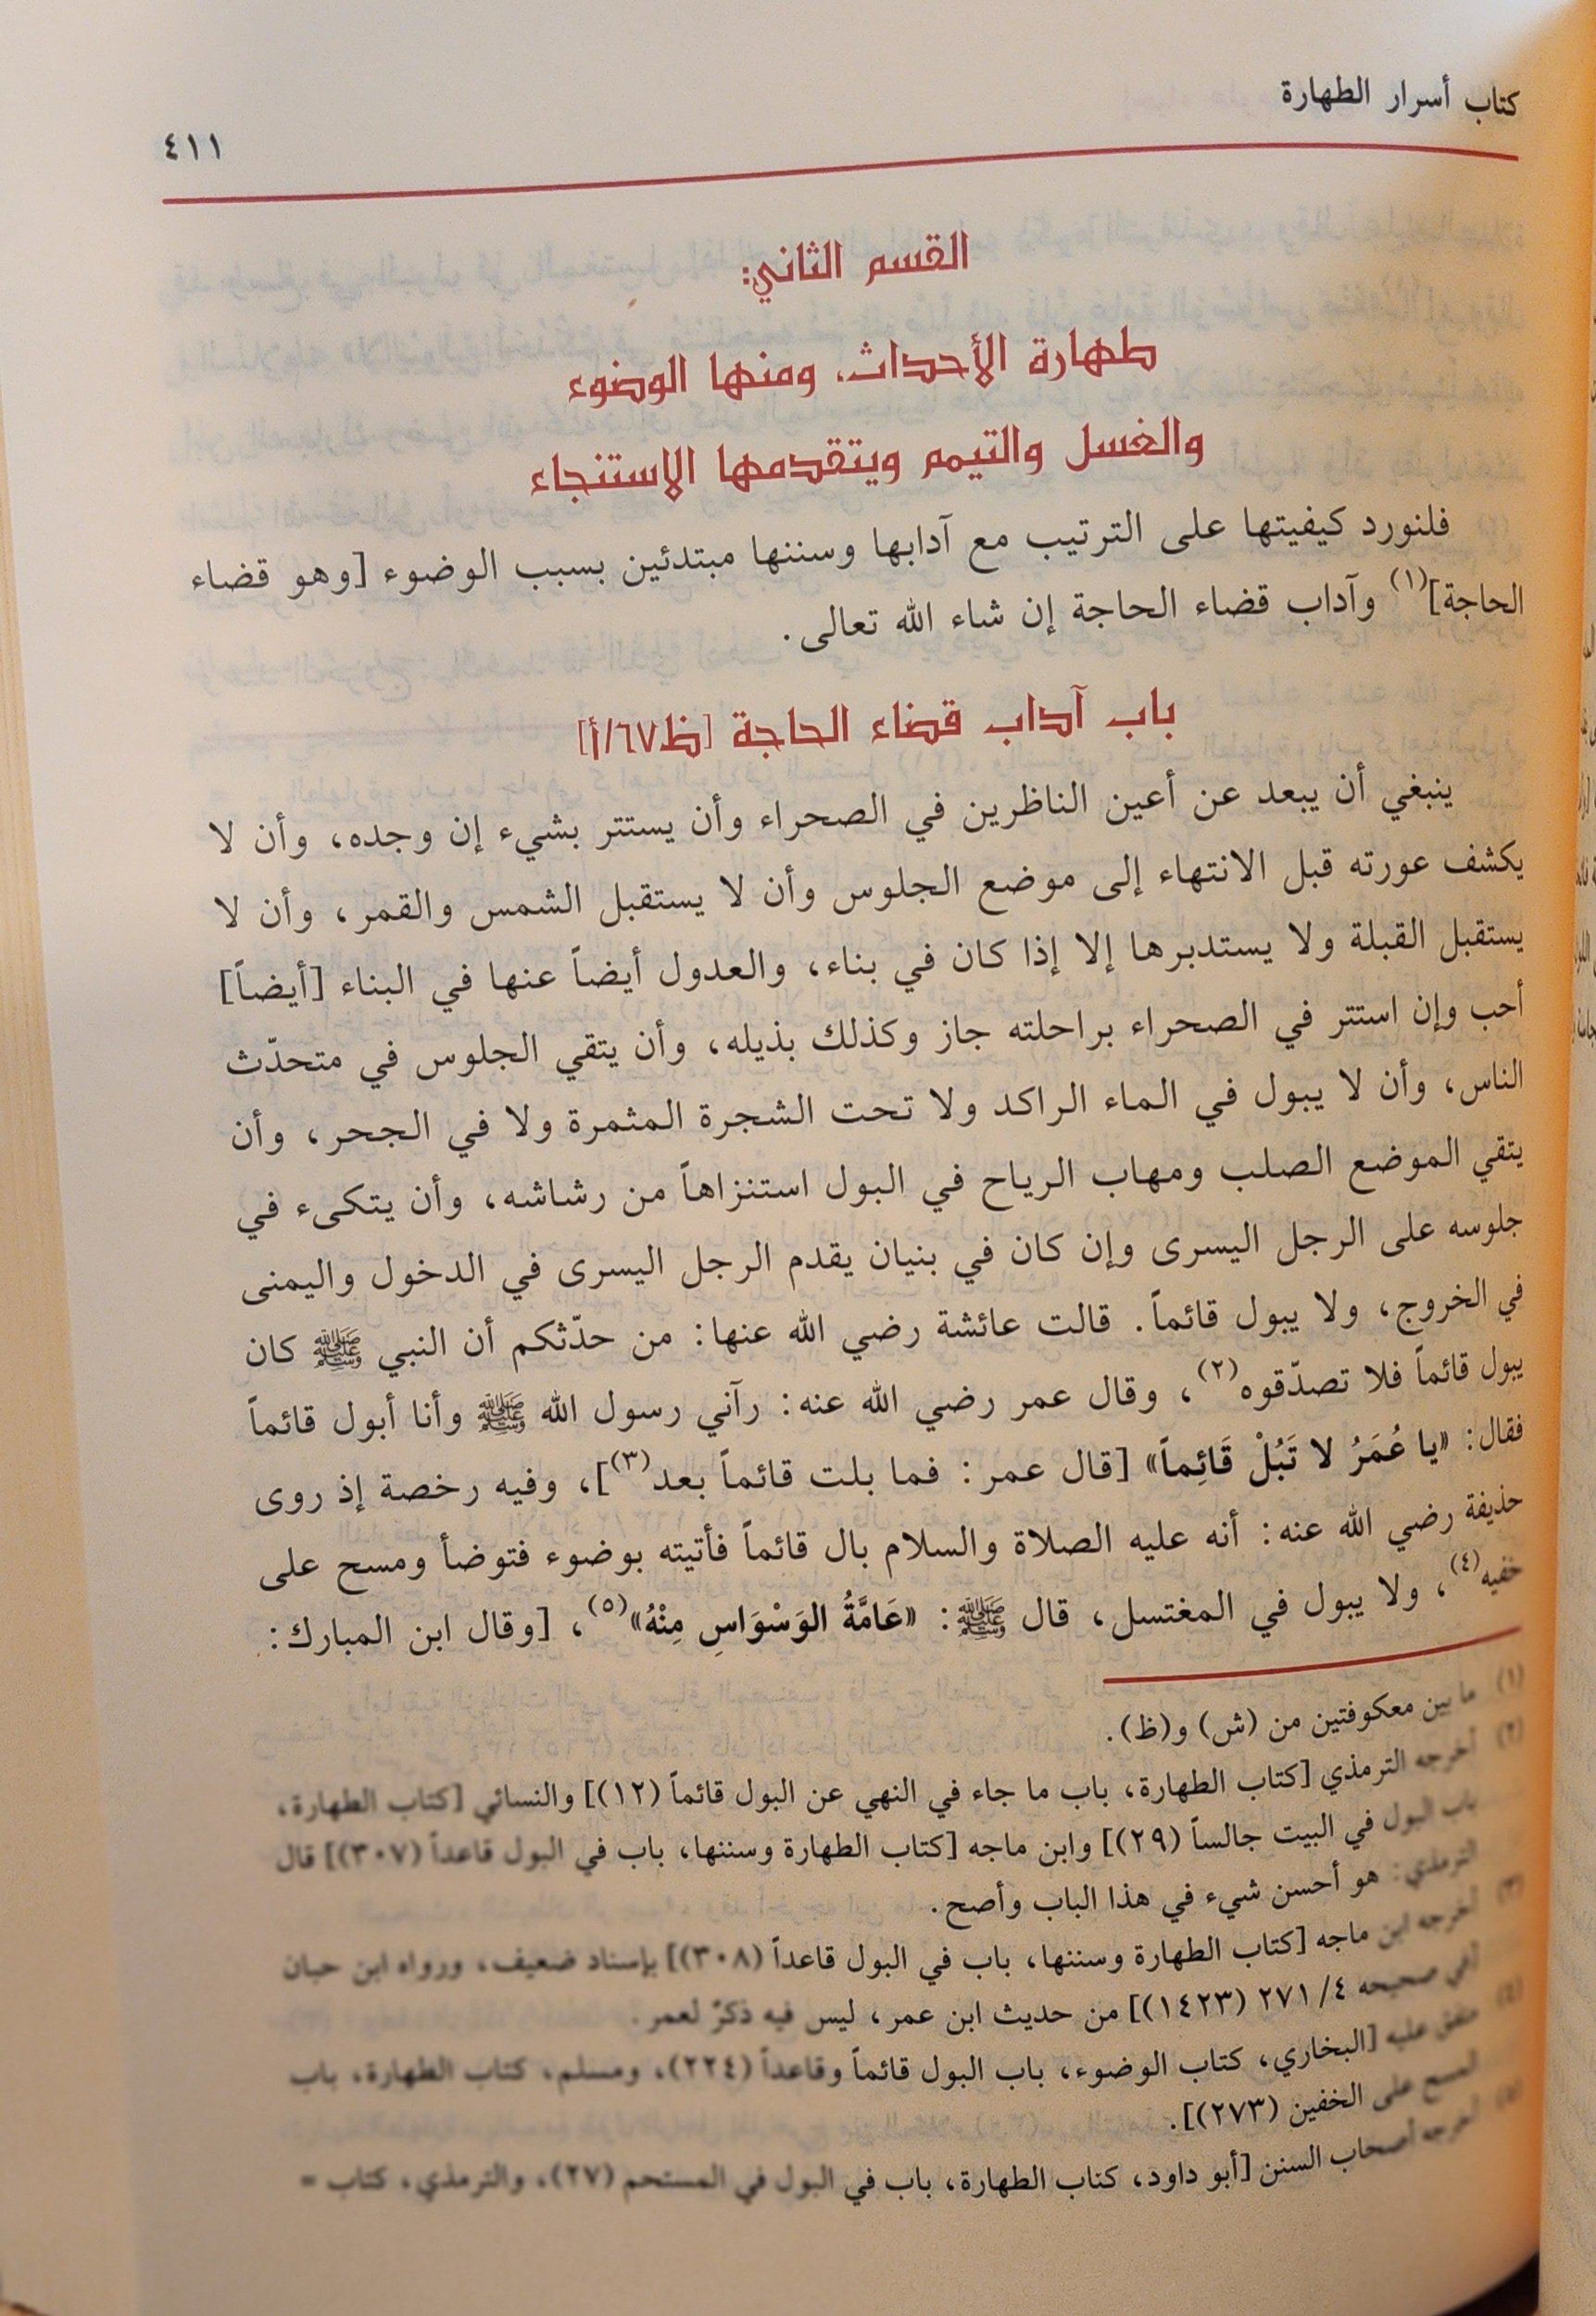 كتاب أسرار الطهارة
٤١١
القسم الثاني:
طهارة الأحداث، ومنها الوضوء
والغسل والتيمم ويتقدمها الاستنجاء
فلنورد كيفيتها على الترتيب مع آدابها وسننها مبتدئين بسبب الوضوء [وهو قضاء
الحاجة](١) وآداب قضاء الحاجة إن شاء الله تعالى.
باب آداب قضاء الحاجة [ظ٦٧/أ]
ينبغي أن يبعد عن أعين الناظرين في الصحراء وأن يستتر بشيء إن وجده، وأن لا
يكشف عورته قبل الانتهاء إلى موضع الجلوس وأن لا يستقبل الشمس والقمر، وأن لا
يستقبل القبلة ولا يستدبرها إلا إذا كان في بناء، والعدول أيضاً عنها في البناء [أيضاً]
أحب وإن استتر في الصحراء براحلته جاز وكذلك بذيله، وأن يتقي الجلوس في متحدّث
الناس، وأن لا يبول في الماء الراكد ولا تحت الشجرة المثمرة ولا في الجحر، وأن
يتقي الموضع الصلب ومهاب الرياح في البول استنزاهاً من رشاشه، وأن يتكىء في
جلوسه على الرجل اليسرى وإن كان في بنيان يقدم الرجل اليسرى في الدخول واليمنى
في الخروج، ولا يبول قائماً. قالت عائشة رضي الله عنها: من حدّثكم أن النبي ﷺ كان
يبول قائماً فلا تصدّقوه(٢)، وقال عمر رضي الله عنه: رآني رسول الله ﷺ وأنا أبول قائماً
فقال: «يا عُمَرُ لا تَبُلْ قَائِماً» [قال عمر: فما بلت قائماً بعد(٣)]، وفيه رخصة إذ روى
حذيفة رضي الله عنه: أنه عليه الصلاة والسلام بال قائماً فأتيته بوضوء فتوضأ ومسح على
خفيه(٤)، ولا يبول في المغتسل، قال ﷺ: «عَامَّةُ الوَسْوَاسِ مِنْهُ»(٥)، [وقال ابن المبارك:
(١) ما بين معكوفتين من (ش) و(ظ).
(٢) أخرجه الترمذي [كتاب الطهارة، باب ما جاء في النهي عن البول قائماً (١٢)] والنسائي [كتاب الطهارة،
باب البول في البيت جالساً (٢٩)] وابن ماجه [كتاب الطهارة وسننها، باب في البول قاعداً (٣٠٧)] قال
الترمذي: هو أحسن شيء في هذا الباب وأصح.
(٣) أخرجه ابن ماجه [كتاب الطهارة وسننها، باب في البول قاعداً (٣٠٨)] بإسناد ضعيف، ورواه ابن حبان
[في صحيحه ٤/ ٢٧١ (١٤٢٣)] من حديث ابن عمر، ليس فيه ذكرٌ لعمر.
(٤) متفق عليه [البخاري، كتاب الوضوء، باب البول قائماً وقاعداً (٢٢٤)، ومسلم، كتاب الطهارة، باب
المسح على الخفين (٢٧٣)].
(٥) أخرجه أصحاب السنن [أبو داود، كتاب الطهارة، باب في البول في المستحم (٢٧)، والترمذي، كتاب =